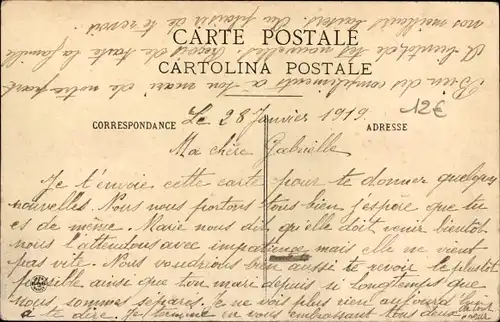 CARTE POSTALE
CARTOLINA POSTALE
CORRESPONDANCE
ADRESSE
12€
Le 28 Janvier 1919
Ma chère Gabrielle
Je t'envoie cette carte pour te donner quelques
nouvelles. Nous nous portons tous bien j'espère que tu
es de même. Marie nous dit qu'elle doit venir bientôt
nous l'attendons avec impatience mais elle ne vient
pas vite. Nous voudrions bien aussi te revoir le plus tôt
possible ainsi que ton mari depuis si longtemps que
nous sommes séparés. Je ne vois plus rien aujourd'hui
à te dire. Je termine en vous embrassant tous deux
de tout cœur
Bien des compliments à ton mari de notre part
A bientôt de tes nouvelles. de toute la famille
nos meilleurs baisers. Au plaisir de te revoir